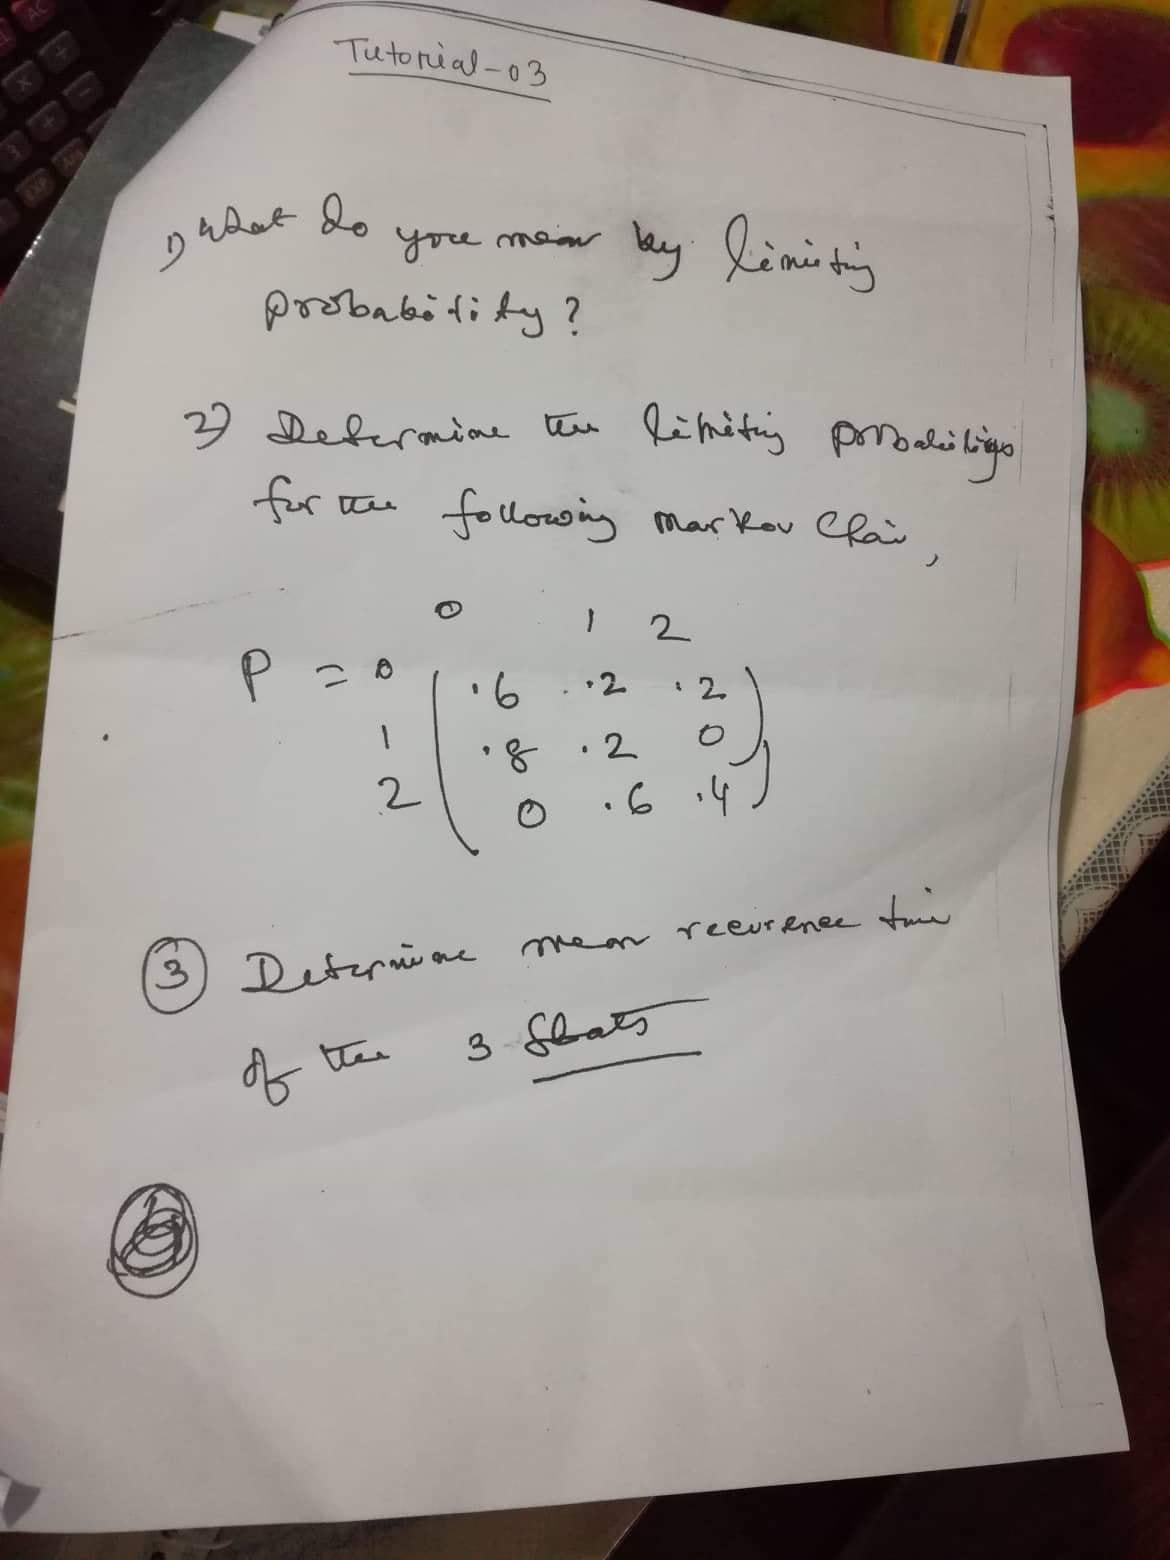 Tutorial-03
1) What do you mean by limiting
probability?
2) Determine the limiting probabilitys
for the following markov Chain,
0 1 2
P = 0 ( .6 .2 .2 )
1 .8 .2 0
2 0 .6 .4
3 Determine mean recurence time
of the 3 Stats